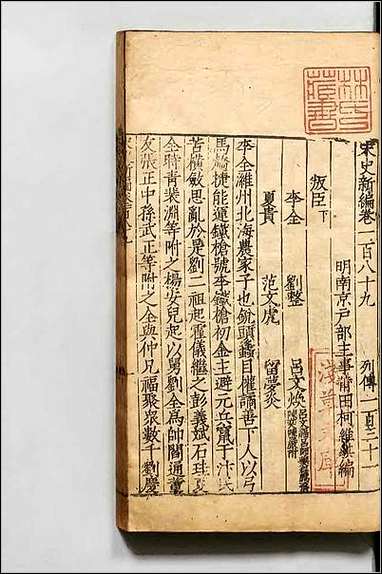 宋史新編卷一百八十九　列傳一百三十一
明南京戶部主事莆田柯維騏編
叛臣下
李全　劉整　呂文煥
夏貴　范文虎　留夢炎
李全濰州北海農家子也銳頭蠭目權譎善下人以弓
馬趫捷能運鐵槍號李鐵槍初金主避元兵竄于汴民
苦橫敛思亂於是劉二祖起霍儀繼之彭義斌石珪夏
全時青裴淵等附之楊安兒起以舅劉全為帥閻通董
友張正中孫武正等附之全與仲兄福聚眾數千劉慶
林氏藏書
淺草文庫